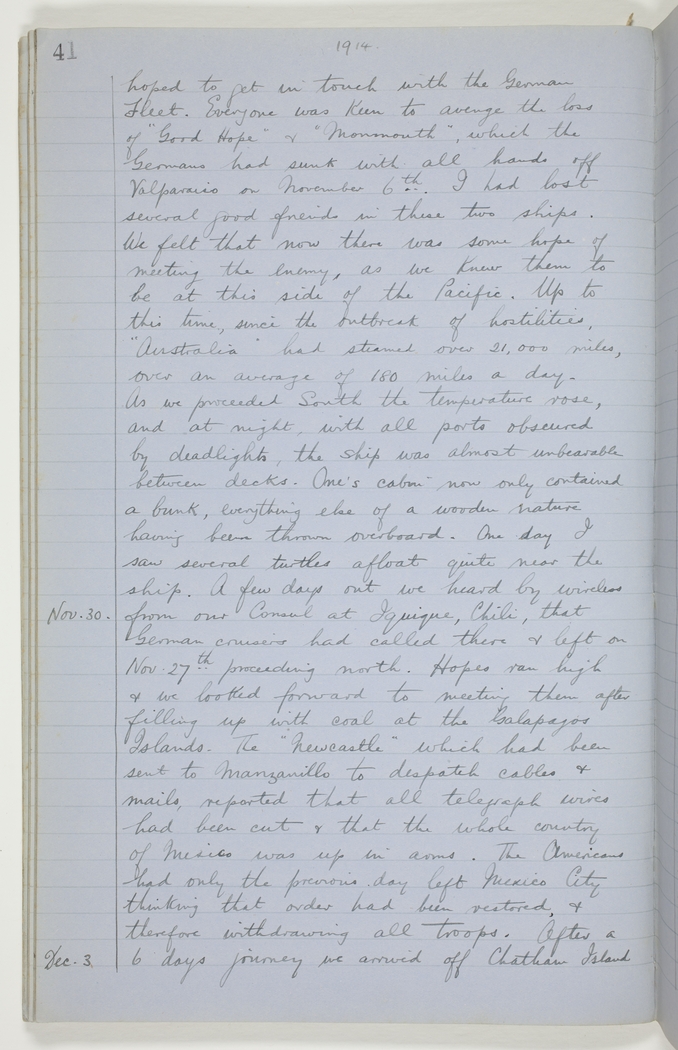 41
1914.
hoped to get in touch with the German
Fleet. Everyone was keen to avenge the loss
of "Good Hope" & "Monmouth", which the
Germans had sunk with all hands off
Valparaiso on November 6th. I had lost
several good friends in these two ships.
We felt that now there was some hope of
meeting the enemy, as we knew them to
be at this side of the Pacific. Up to
this time, since the outbreak of hostilities,
"Australia" had steamed over 21,000 miles,
over an average of 180 miles a day.
As we proceeded South the temperature rose,
and at night, with all ports obscured
by deadlights, the ship was almost unbearable
between decks. One's cabin now only contained
a bunk, everything else of a wooden nature
having been thrown overboard. One day I
saw several turtles afloat quite near the
ship. A few days out we heard by wireless
Nov. 30. from our Consul at Iquique, Chili, that
German cruisers had called there & left on
Nov. 27th proceeding north. Hopes ran high
& we looked forward to meeting them after
filling up with coal at the Galapagos
Islands. The "Newcastle" which had been
sent to Manzanillo to despatch cables &
mails, reported that all telegraph wires
had been cut & that the whole country
of Mexico was up in arms. The Americans
had only the previous day left Mexico City
thinking that order had been restored, &
therefore withdrawing all troops. After a
Dec. 3. 6 days journey we arrived off Chatham Island